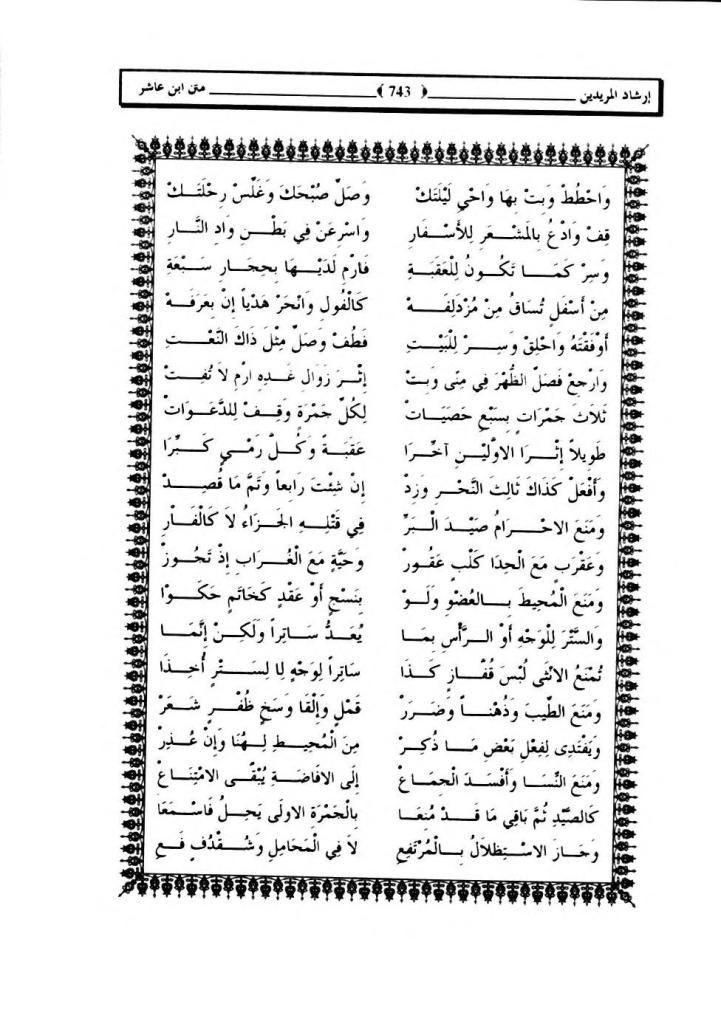 إرشاد المريدين ﴿ 743 ﴾ متن ابن عاشر
وَاحْطُطْ وَبِتْ بِهَا وَاحْيِ لَيْلَتَكْ وَصَلِّ صُبْحَكَ وَغَلِّسْ رِحْلَتَكْ
قِفْ وَادْعُ بِالْمَشْعَرِ لِلأَسْفَارِ وَاسْرِعَنْ فِي بَطْنِ وَادِ النَّارِ
وَسِرْ كَمَا تَكُونُ لِلْعَقَبَةِ فَارْمِ لَدَيْهَا بِحِجَارٍ سَبْعَةِ
مِنْ أَسْفَلٍ تُسَاقُ مِنْ مُزْدَلِفَهْ كَالْفُولِ وَانْحَرْ هَدْياً إِنْ بِعَرَفَهْ
أَوْقَفْتَهُ وَاحْلِقْ وَسِرْ لِلْبَيْتِ فَطُفْ وَصَلِّ مِثْلَ ذَاكَ النَّعْتِ
وَارْجِعْ فَصَلِّ الظُّهْرَ فِي مِنًى وَبِتْ إِثْرَ زَوَالِ غَدِهِ ارْمِ لاَ تُفِتْ
ثَلاَثَ جَمْرَاتٍ بِسَبْعِ حَصَيَاتْ لِكُلِّ جَمْرَةٍ وَقِفْ لِلدَّعَوَاتْ
طَوِيلاً إِثْرَا الاوَّلَيْنِ آخِّرَا عَقَبَةً وَكُلَّ رَمْيٍ كَبِّرَا
وَأَفْعَلْ كَذَاكَ ثَالِثَ النَّحْرِ وَزِدْ إِنْ شِئْتَ رَابِعاً وَتَمَّ مَا قُصِدْ
وَمَنَعَ الاحْرَامُ صَيْدَ الْبَرِّ فِي قَتْلِهِ الجَزَاءُ لاَ كَالْفَارِ
وَعَقْرَبٍ مَعَ الْحِدَا كَلْبٍ عَقُورْ وَحَيَّةٍ مَعَ الْغُرَابِ إِذْ تَجُوزْ
وَمَنَعَ الْمُحِيطَ بِالعُضْوِ وَلَوْ بِنَسْجٍ أَوْ عَقْدٍ كَخَاتَمٍ حَكَوْا
وَالسَّتْرَ لِلْوَجْهِ أَوِ الرَّأْسِ بِمَا يُعَدُّ سَاتِراً وَلَكِنْ إِنَّمَا
تُمْنَعُ الانْثَى لُبْسَ قُفَّازٍ كَذَا سَاتِراً لِوَجْهٍ لِا لِسَتْرٍ أُخِذَا
وَمَنَعَ الطِّيبَ وَدُهْناً وَضَرَرْ قَمْلٍ وَإِلْقَا وَسَخٍ ظُفْرٍ شَعَرْ
وَيَفْتَدِى لِفِعْلِ بَعْضِ مَا ذُكِرْ مِنَ الْمُحِيطِ لِهُنَا وَإِنْ عُذِرْ
وَمَنَعَ النِّسَا وَأَفْسَدَ الْجِمَاعْ إِلَى الافَاضَةِ يُبْقَى الامْتِنَاعْ
كَالصَّيْدِ ثُمَّ بَاقِي مَا قَدْ مُنِعَا بِالْجَمْرَةِ الاولَى يَحِلُّ فَاسْمَعَا
وَجَازَ الاسْتِظْلاَلُ بِالْمُرْتَفِعِ لاَ فِي الْمَحَامِلِ وَشُقْدُفٍ فَعِ